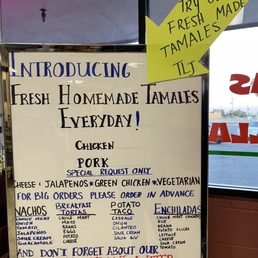 TRY OUR
FRESH MADE
TAMALES
TLJ
INTRODUCING
FRESH HOMEMADE TAMALES
EVERYDAY!
CHICKEN
PORK
SPECIAL REQUEST ONLY
CHEESE & JALAPENOS * GREEN CHICKEN * VEGETARIAN
FOR BIG ORDERS PLEASE ORDER IN ADVANCE
NACHOS
CHOICE MEAT
ONION
TOMATO
JALAPENOS
SOUR CREAM
GUACAMOLE
BREAKFAST
TORTAS
CHOICE MEAT
HAM
BEANS
EGGS
POTATO
CHEESE
POTATO
TACO
CABBAGE
ONION
CILANTRO
SOUR CREAM
SALSA
ENCHILADAS
CHOICE MEAT
RICE
BEANS
LETTUCE
CHEESE
SOUR CREAM
TOMATO
AND DON'T FORGET ABOUT OUR